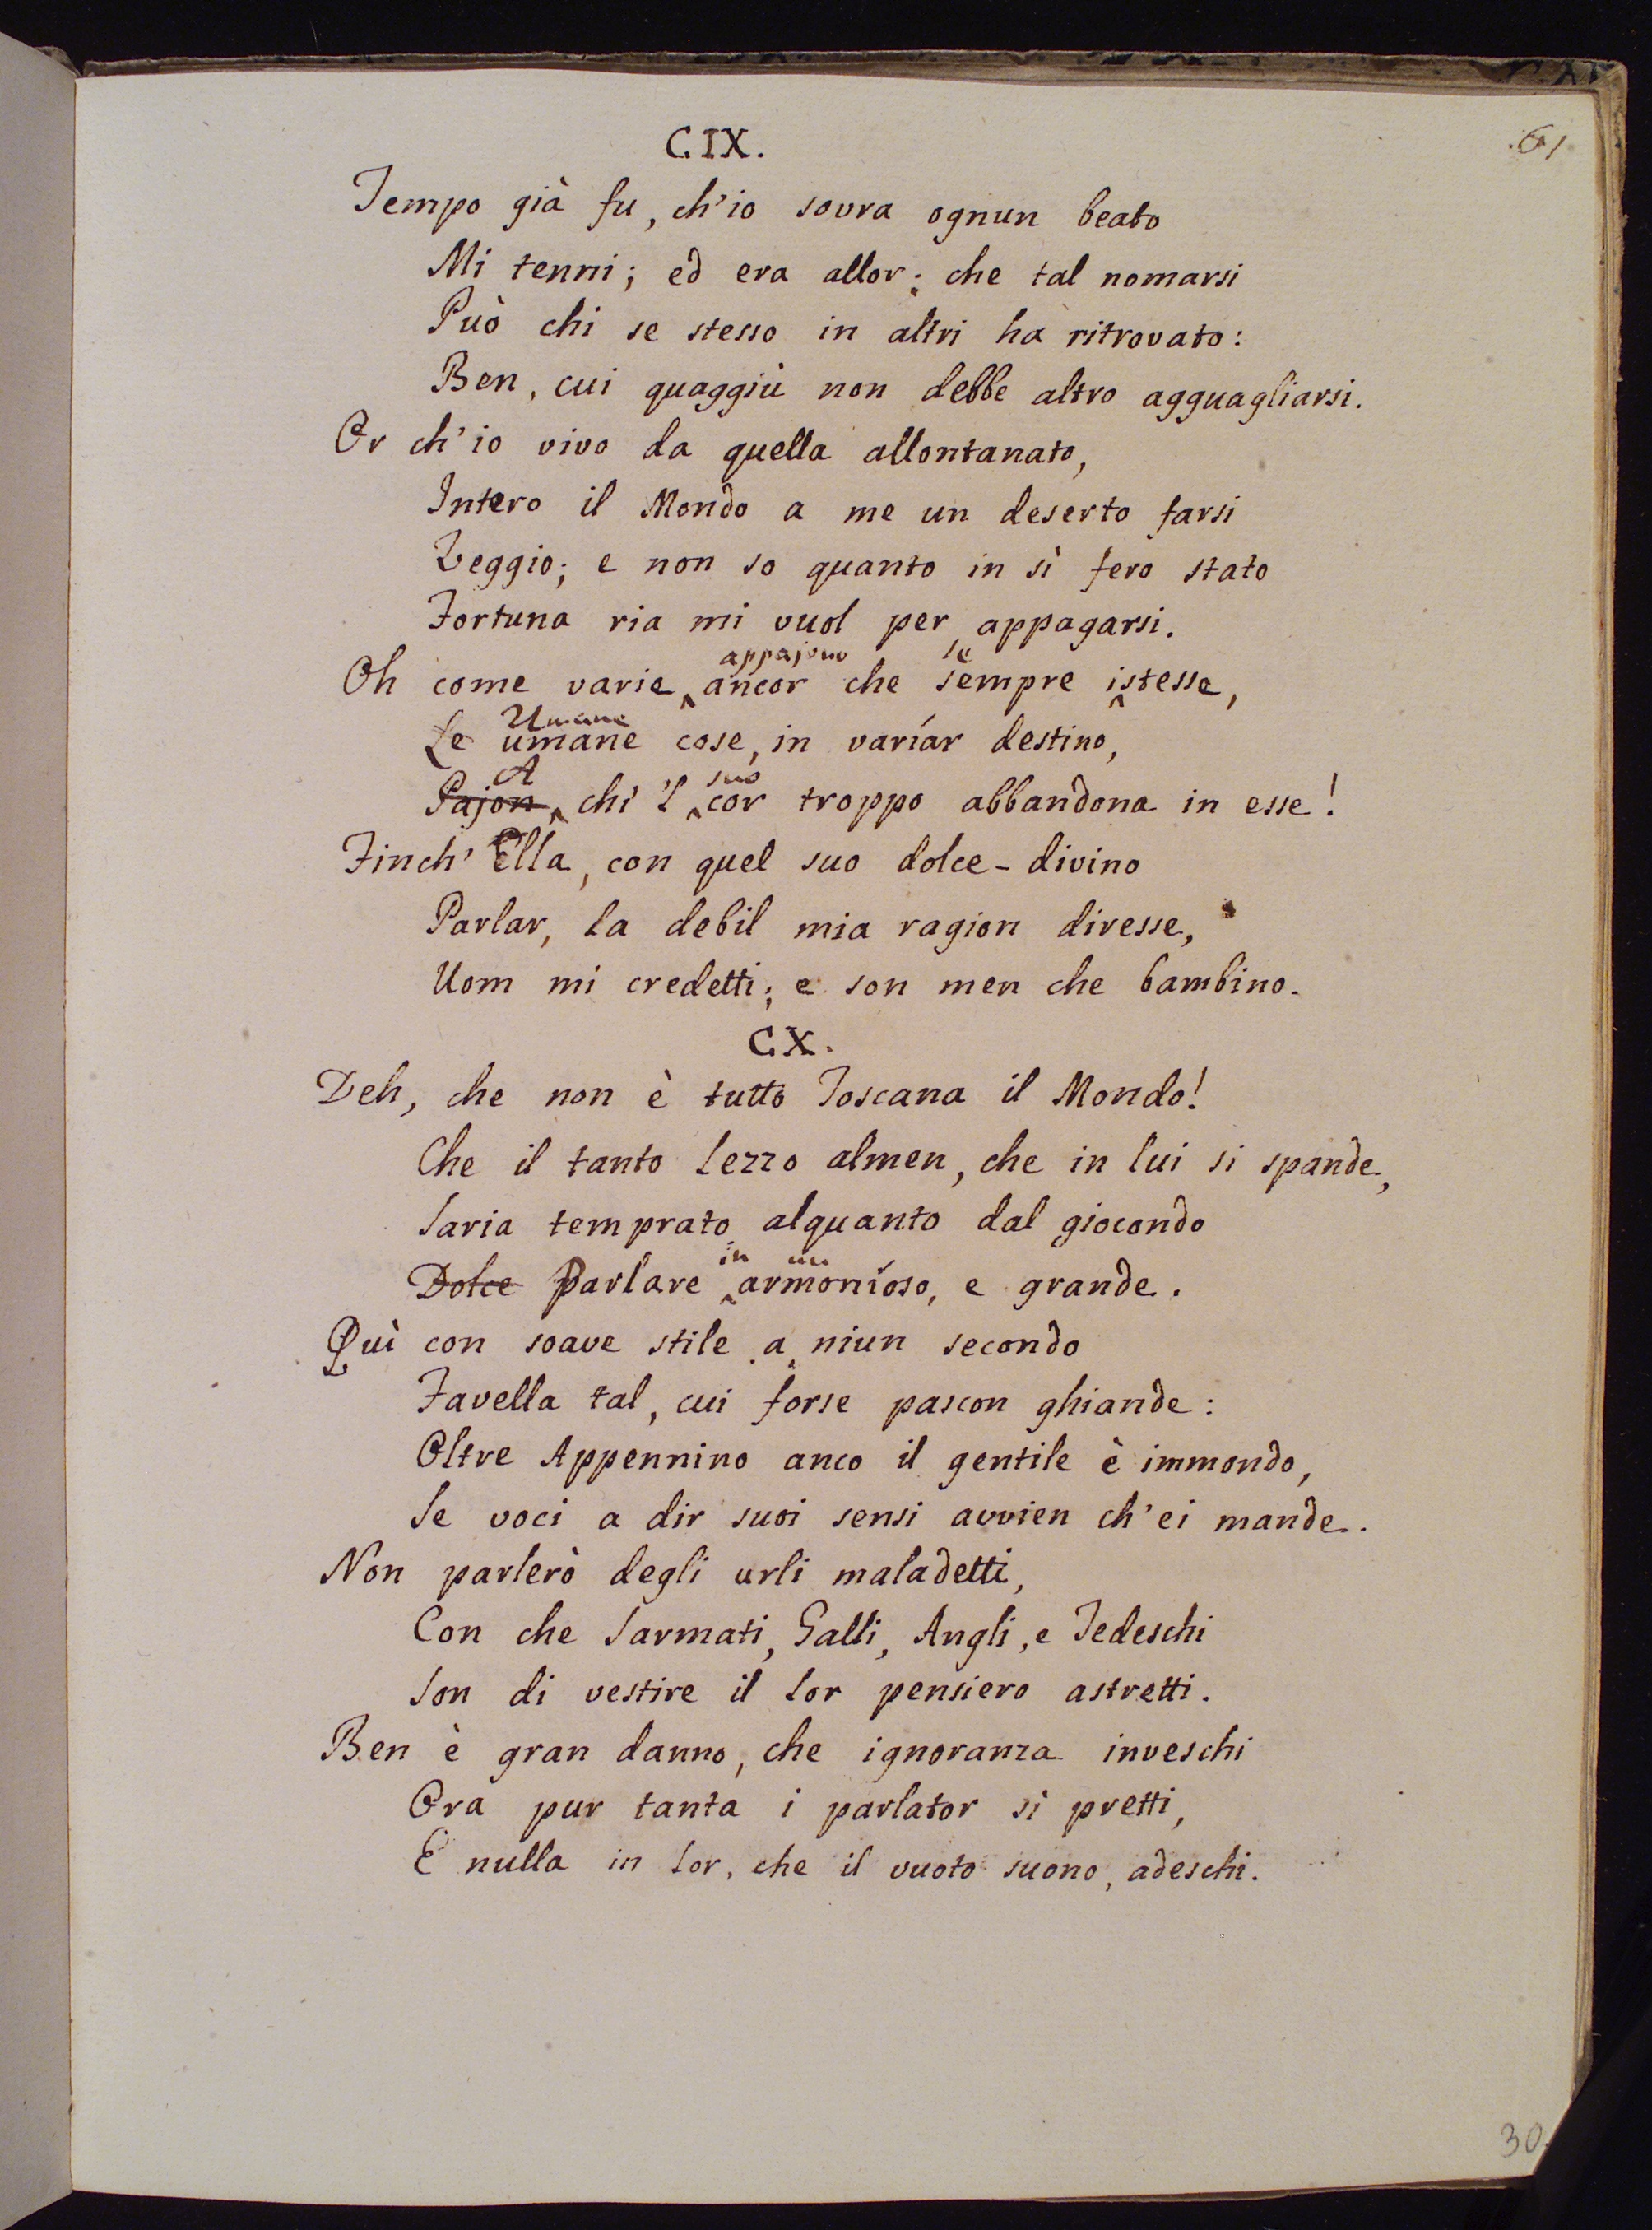 61
CIX.
Tempo già fu, ch'io sovra ognun beato
Mi tenni; ed era allor; che tal nomarsi
Può chi se stesso in altri ha ritrovato:
Ben, cui quaggiù non debbe altro agguagliarsi.
Or ch'io vivo da quella allontanato,
Intero il Mondo a me un deserto farsi
Veggio; e non so quanto in sì fero stato
Fortuna ria mi vuol per appagarsi.
appajono se
Oh come varie ancor che sempre istesse,
Umane
Le umane cose, in varíar destino,
A suo
Pajon chi 'l cor troppo abbandona in esse!
Finch' Ella, con quel suo dolce-divino
Parlar, la debil mia ragion diresse,
Uom mi credetti; e son men che bambino.
CX.
Deh, che non è tutto Toscana il Mondo!
Che il tanto lezzo almen, che in lui si spande,
Saria temprato alquanto dal giocondo
in un
Dolce Parlare armoníoso, e grande.
Quì con soave stile a niun secondo
Favella tal, cui forse pascon ghiande:
Oltre Appennino anco il gentile è immondo,
Se voci a dir suoi sensi avvien ch'ei mande.
Non parlerò degli urli maladetti,
Con che Sarmati, Galli, Angli, e Tedeschi
Son di vestire il lor pensiero astretti.
Ben è gran danno, che ignoranza inveschi
Ora pur tanta i parlator sì pretti,
E nulla in lor, che il vuoto suono, adeschi.
30